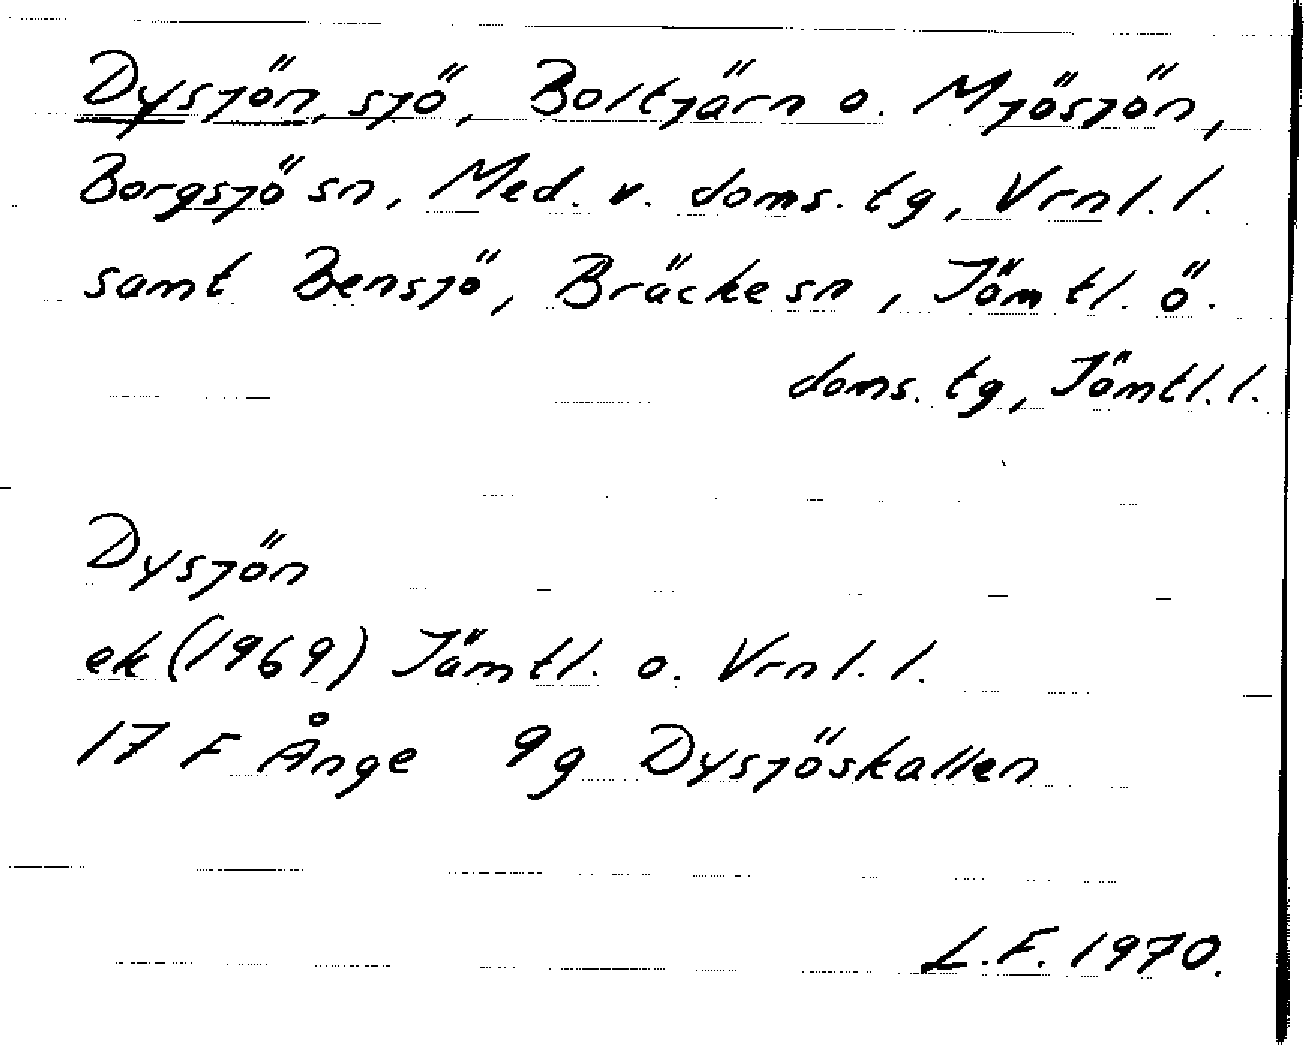 Dysjön, sjö, Boltjärn o. Mjösjön,
Borgsjö sn, Med. v. doms. tg, Vrnl. l.
samt Bensjö, Bräcke sn, Jämtl. ö.
doms. tg, Jämtl. l.
Dysjön
ek (1969) Jämtl. o. Vrnl. l.
17 F Ånge 9g Dysjöskallen
L.F. 1970.